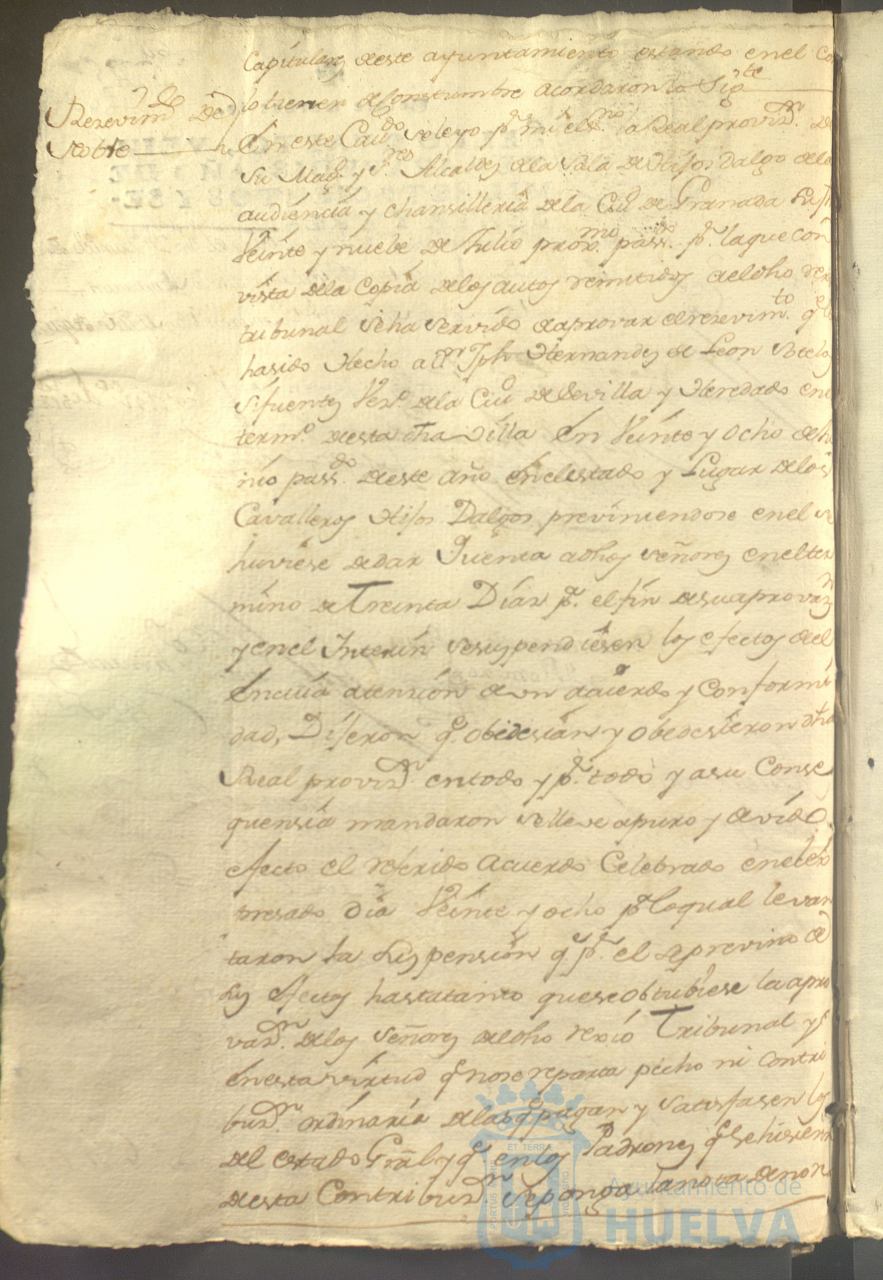 Capitulares deste ayuntamiento estando en el
lo tienen de Constumbre acordaron lo Sigte
Rezevimto de
Noble
En este Cavdo se leyo pr mi el Sno la Real provisn de
Su Magd y Sres Alcaldes de la Sala de Hijos dalgo de la
audiencia y chansilleria de la Ciud de Granada Su fha
Veinte y nuebe de Julio proxmo passo pr la que con
vista de la Copia de los autos remitidos a el dho rexio
tribunal se ha servido de aprovar el rezevimto qe
ha sido Hecho a Dn Jph Hernandez de Leon
Sifuentes Vezo de la Ciud de Sevilla y Heredado en el
termo desta dha Villa En Veinte y ocho de Ju
nio passdo deste año En el estado y Lugar de los
Cavalleros Hijos Dalgos previniendose en el se
huviese de dar Quenta a dhos Señores en el ter
mino de Treinta Dias pa el fin de su aprovazn
y en el Interin se suspendiesen los efectos del
En cuia atension de un acuerdo y Conformi
dad, Dijeron qe obedesian y obedesieron dha
Real provisn en todo y pr todo y a su Conse
quensia mandaron se lleve a puro y devido
efecto el referido acuerdo Celebrado en el ex
presado dia Veinte y ocho pr lo qual levan
taron la Suspension qe pr el se previno de
sus efectos hasta tanto que se obtubiese la apro
vazn de los Señores de dho rexio Tribunal y
En esta virtud qe no se reparta pecho ni contri
buzn ordinaria de las qe pagan y satisfasen los
del estado Gral y qe en los Padrones qe se hisieren
desta Contribuzn se ponga la nota de
Ayuntamiento de
HUELVA